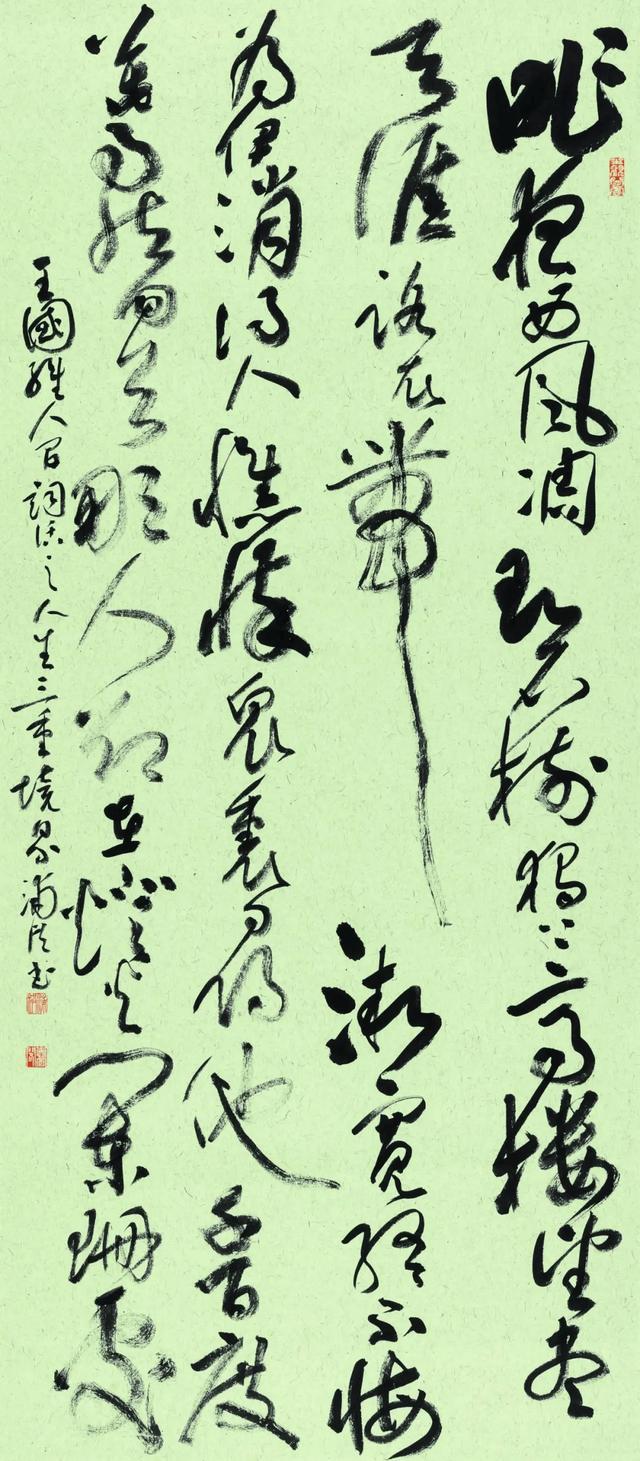 昨夜西風凋碧樹獨上高樓望盡
天涯路衣帶漸寬終不悔
為伊消得人憔悴眾裏尋他千百度
驀然回首那人却在燈火闌珊處
王國維人間詞話之人生三重境界書